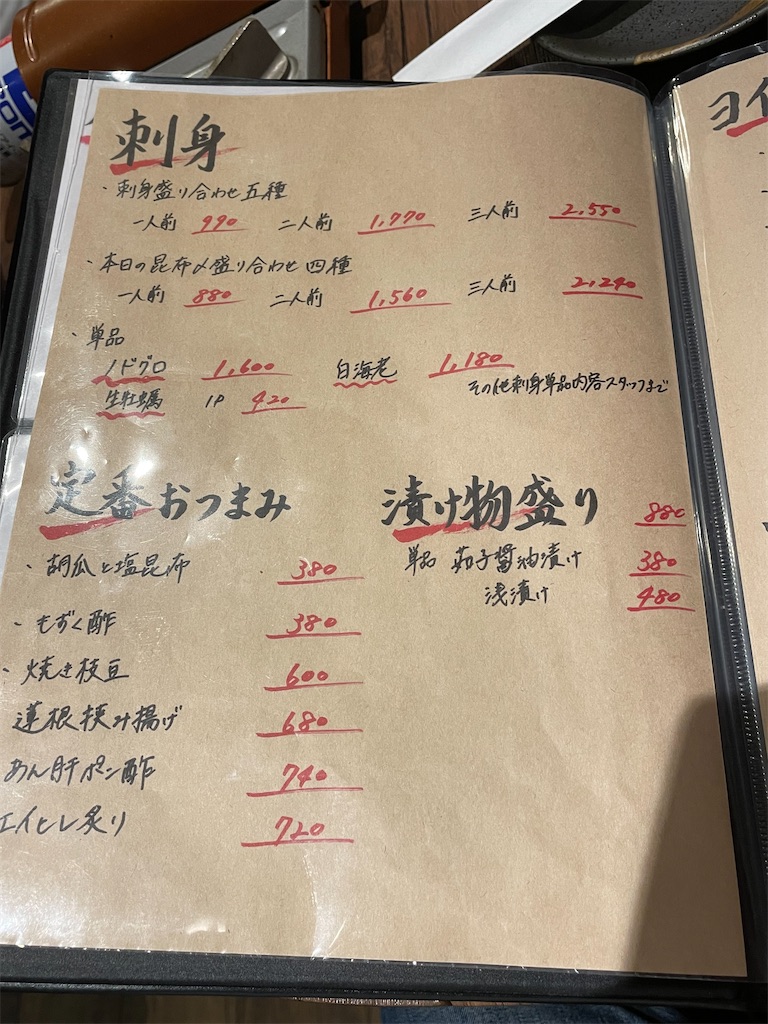 刺身
・刺身盛り合わせ五種
一人前 990 二人前 1,770 三人前 2,550
・本日の昆布〆盛り合わせ 四種
一人前 880 二人前 1,560 三人前 2,240
・単品
ノドグロ 1,600 白海老 1,180
生牡蠣 1P 420 その他刺身単品内容スタッフまで
定番おつまみ
・胡瓜と塩昆布 380
・もずく酢 380
・焼き枝豆 600
蓮根挟み揚げ 680
あん肝ポン酢 740
エイヒレ炙り 720
漬け物盛り 880
単品 茄子醤油漬け 380
浅漬け 480